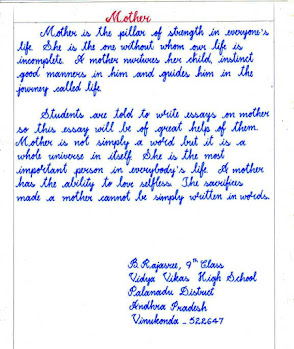 Mother
Mother is the pillar of strength in everyone's
life. She is the one without whom our life is
incomplete. A mother nurtures her child, instinct
good manners in him and guides him in the
journey called life.
Students are told to write essays on mother
so this essay will be of great help of them.
Mother is not simply a word but it is a
whole universe in itself. She is the most
important person in everybody's life. A mother
has the ability to love selfless. The sacrifices
made a mother cannot be simply written in words.
B. Rajasree, 9th Class
Vidya Vikas High School
Palanadu District
Andhra Pradesh
Vinukonda - 522647